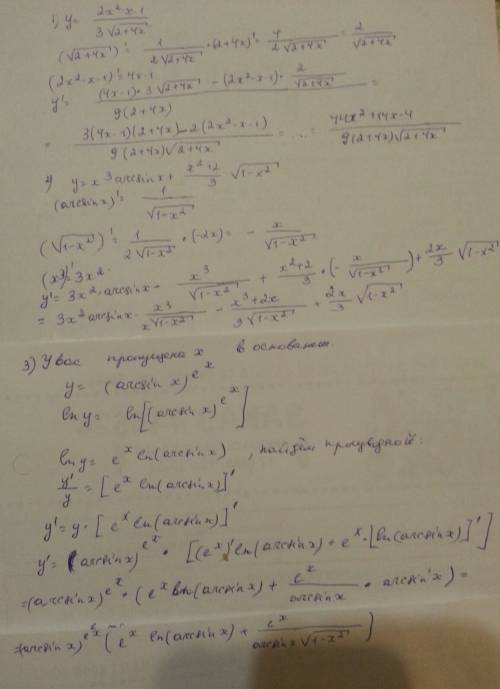 1) y = (2x²-x-1)/(3√(2+4x))
(√(2+4x))' = 1/(2√(2+4x)) · (2+4x)' = 4/(2√(2+4x)) = 2/√(2+4x)
(2x²-x-1)' = 4x-1
y' = ((4x-1)·3√(2+4x) - (2x²-x-1)· 2/√(2+4x))/(9(2+4x)) =
= (3(4x-1)(2+4x)-2(2x²-x-1))/(9(2+4x)√(2+4x)) = ... = (44x²+14x-4)/(9(2+4x)√(2+4x))
2) y = x³ arcsin x + (x²+2)/3 √(1-x²)
(arcsin x)' = 1/√(1-x²)
(√(1-x²))' = 1/(2√(1-x²)) · (-2x) = - x/√(1-x²)
(x³)' = 3x²
y' = 3x² · arcsin x - x³/√(1-x²) + (x²+2)/3 · (- x/√(1-x²)) + 2x/3 √(1-x²)
= 3x² arcsin x - x³/√(1-x²) - (x³+2x)/(3√(1-x²)) + 2x/3 √(1-x²)
3) У вас пропущена x в основании.
y = (arcsin x)^(e^x)
ln y = ln[(arcsin x)^(e^x)]
ln y = e^x ln(arcsin x) , найдём производной:
y'/y = [e^x ln(arcsin x)]'
y' = y · [e^x ln(arcsin x)]'
y' = (arcsin x)^(e^x) · [(e^x)' ln(arcsin x) + e^x · [ln(arcsin x)]']
= (arcsin x)^(e^x) · (e^x ln(arcsin x) + e^x/(arcsin x) · arcsin'x) =
= (arcsin x)^(e^x) (e^x ln(arcsin x) + e^x/(arcsin x √(1-x²)))